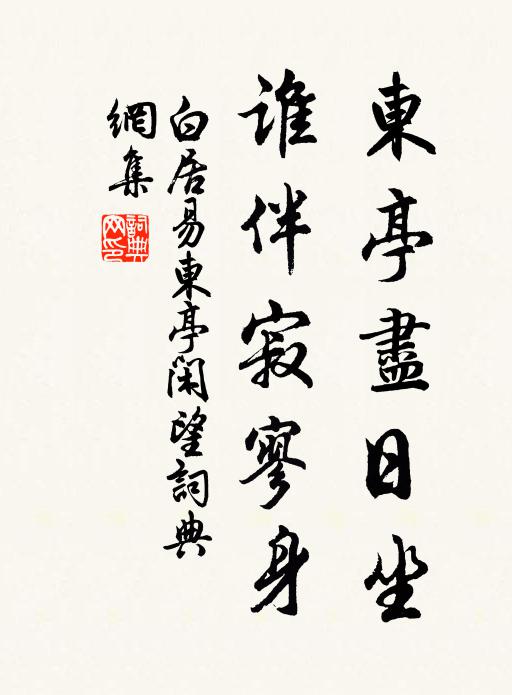 東亭盡日坐
誰伴寂寥身
白居易東亭閑望詞典
網集
詞典
网印